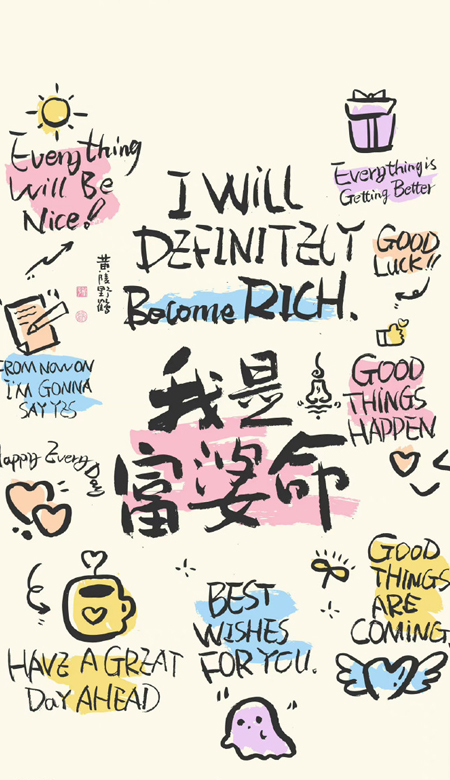 Everything
Will Be
Nice!
Everything is
Getting Better
I Will
DEFINITELY
Become RICH.
GOOD
LUCK!!
FROM NOW ON
I'M GONNA
SAY YES
我是
富婆命
GOOD
THINGS
HAPPEN
Happy Every Day
GOOD
THINGS
ARE
COMING.
BEST
WISHES
FOR YOU.
HAVE A GREAT
Day AHEAD